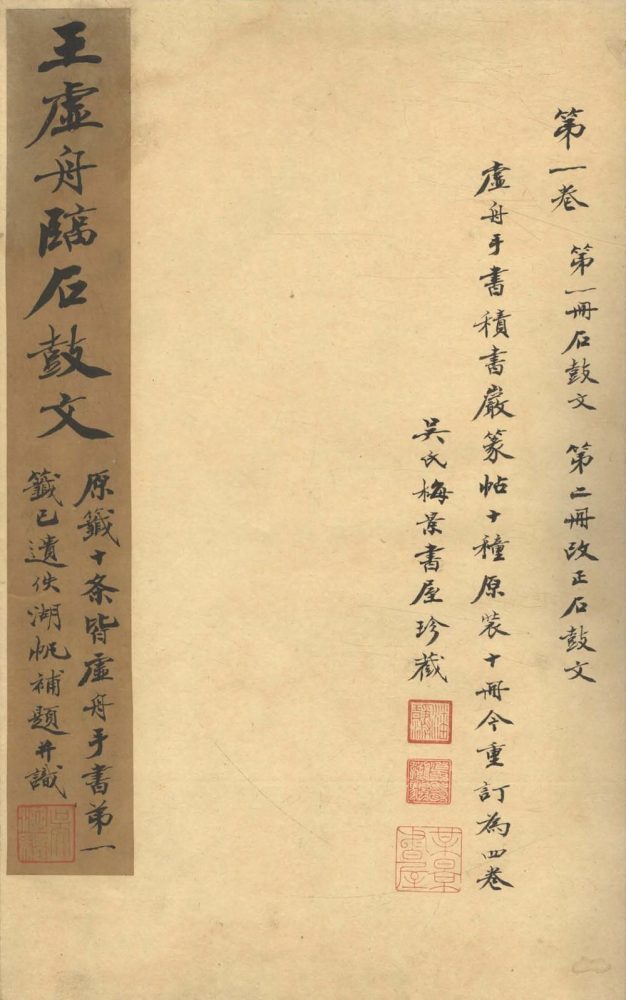 第一卷 第一冊石鼓文 第二冊改正石鼓文
虛舟手書積書巖篆帖十種原裝十冊今重訂為四卷
吳氏梅景書屋珍藏
王虛舟臨石鼓文
原籤十条皆虛舟手書第一
籤已遺佚湖帆補題并識
梅景書屋